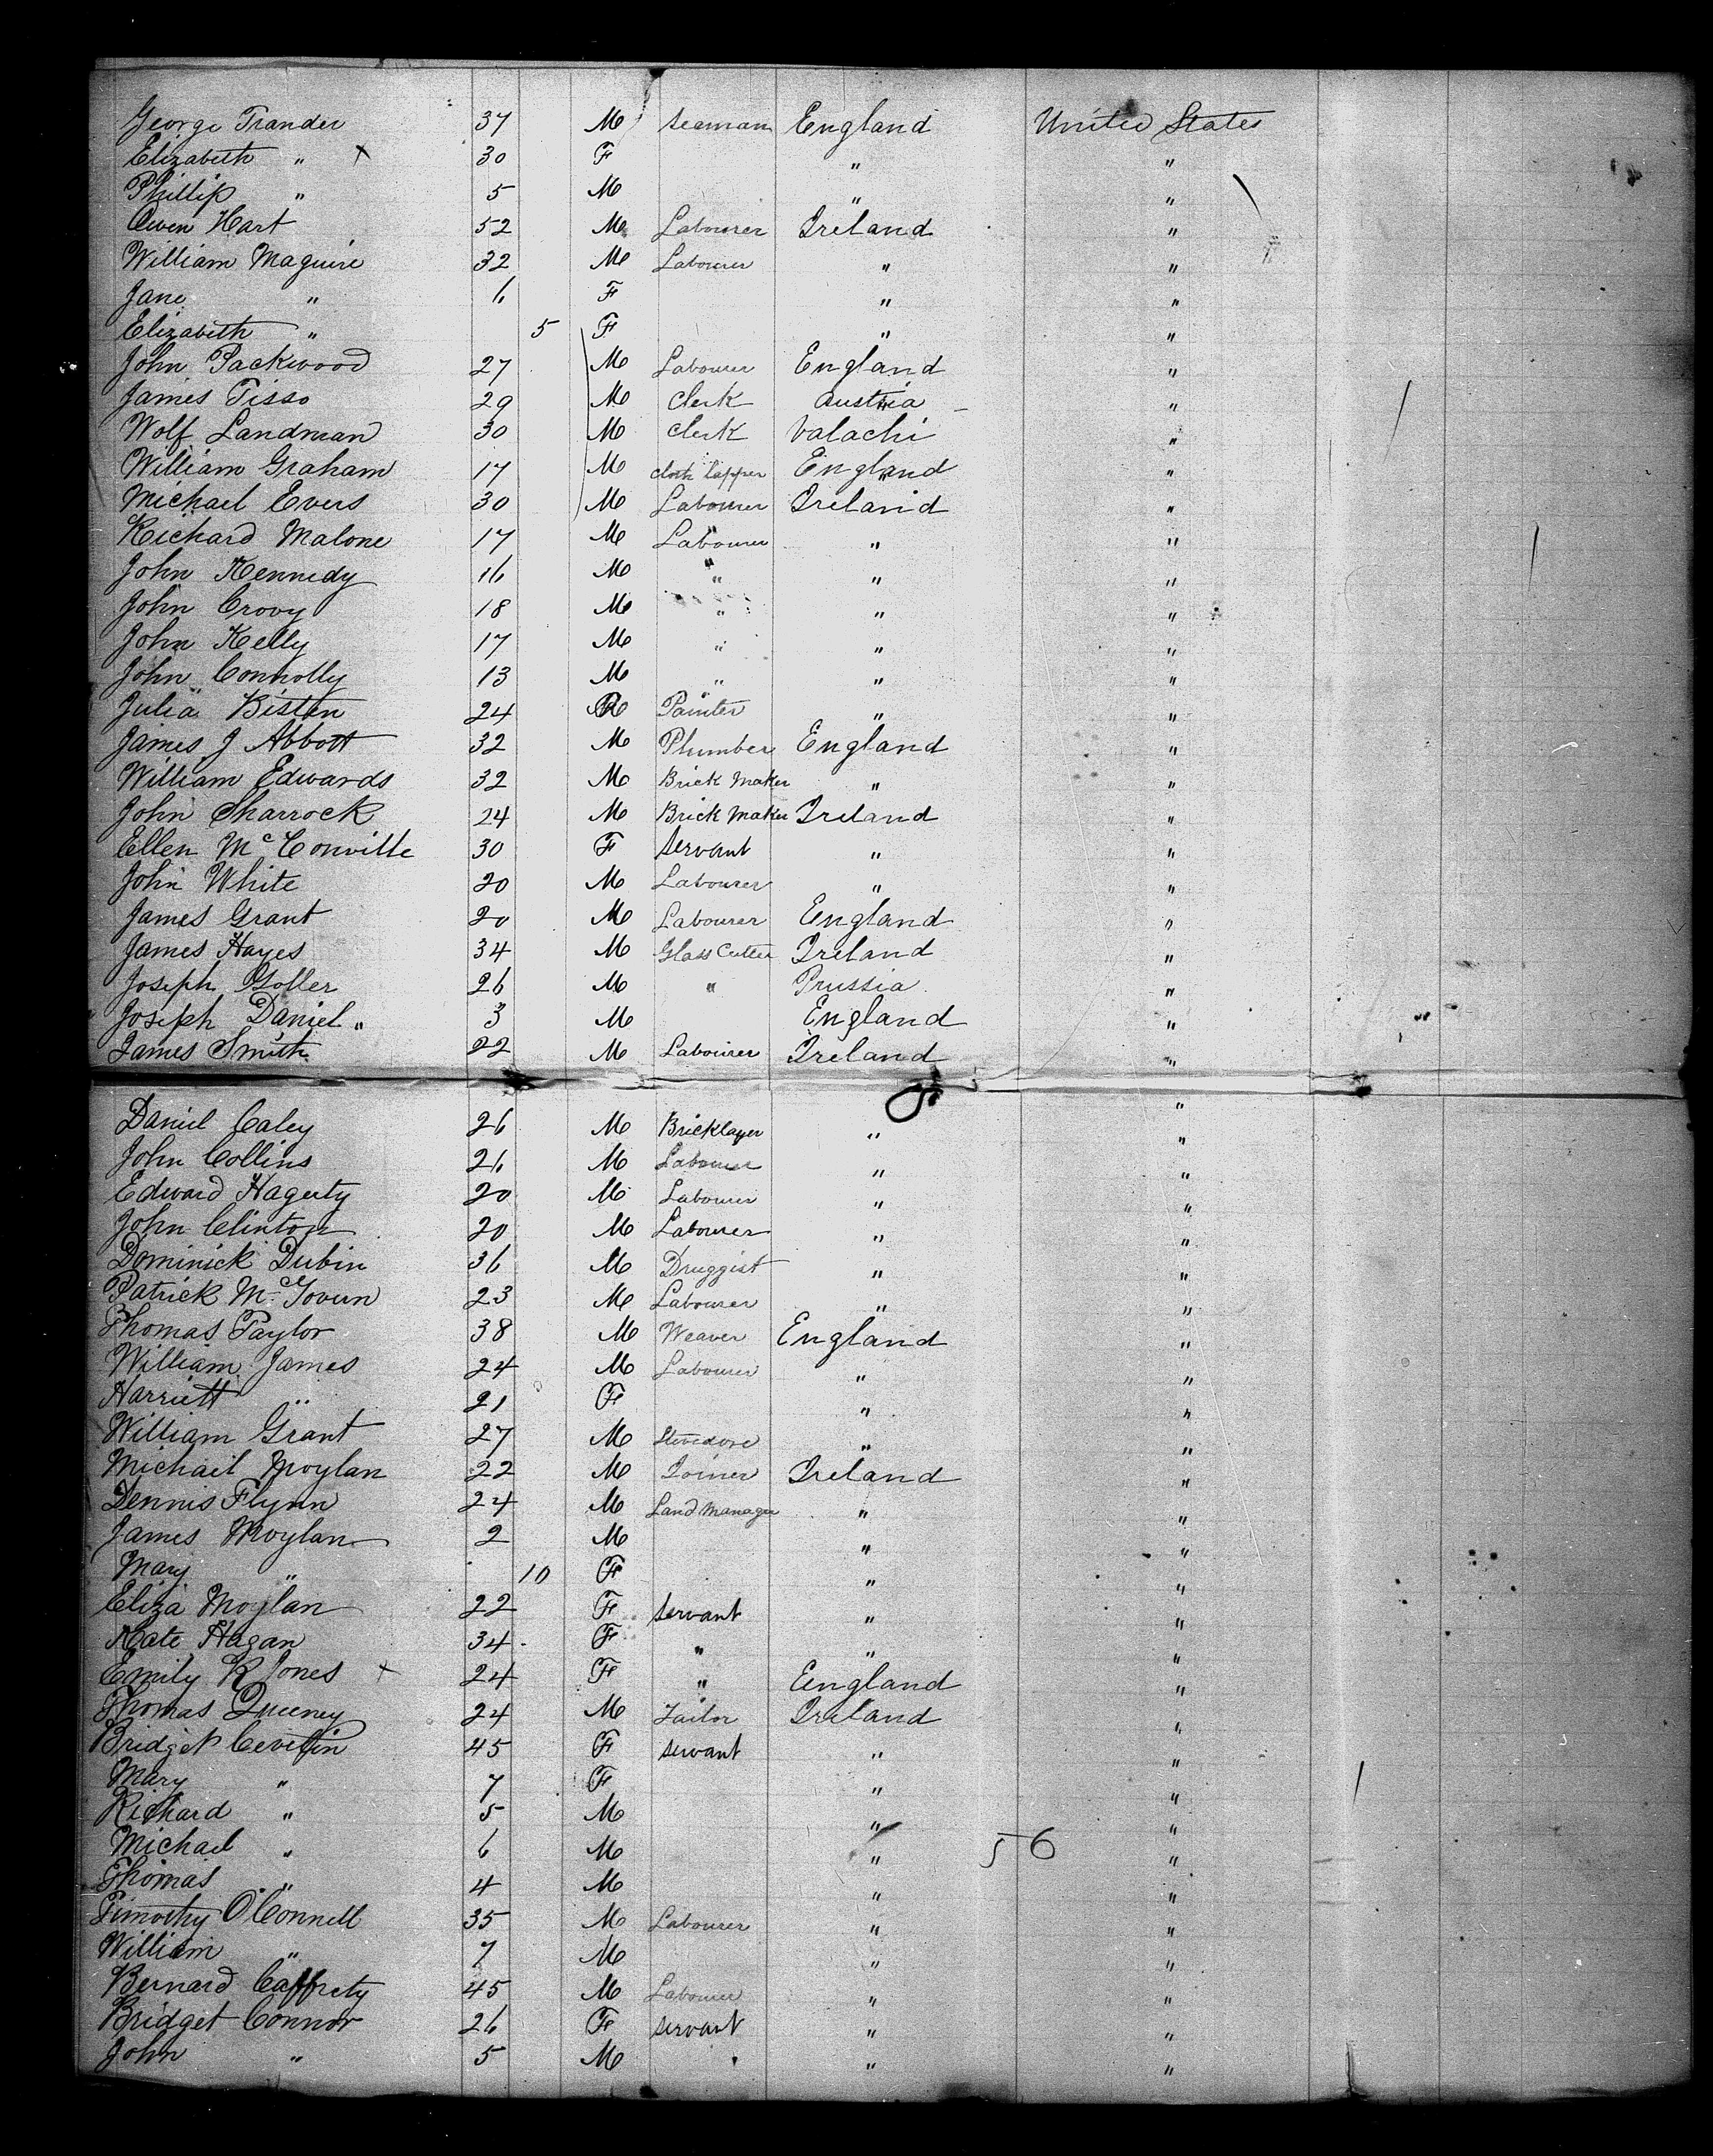 George Trander 37 M seaman England United States
Elizabeth " x 30 F " "
Phillip " 5 M " "
Owen Hart 52 M Labourer Ireland "
William Maguire 32 M Labourer " "
Jane " 6 F " "
Elizabeth " 5 F " "
John Packwood 27 M Labourer England "
James Tisso 29 M Clerk Austria "
Wolf Landman 30 M Clerk Valachi "
William Graham 17 M Cloth Lapper England "
Michael Evers 30 M Labourer Ireland "
Richard Malone 17 M Labourer " "
John Kennedy 16 M " " "
John Crovy 18 M " " "
John Kelly 17 M " " "
John Connolly 13 M " " "
Julia Bisten 24 Painter " "
James J Abbott 32 M Plumber England "
William Edwards 32 M Brick Maker " "
John Sharrock 24 M Brick Maker Ireland "
Ellen McConville 30 F servant " "
John White 20 M Labourer " "
James Grant 20 M Labourer England "
James Hayes 34 M Glass Cutter Ireland "
Joseph Goller 26 M " Prussia "
Joseph Daniel " 3 M England "
James Smith 22 M Labourer Ireland "
"
Daniel Caley 26 M Bricklayer " "
John Collins 26 M Labourer " "
Edward Hagerty 20 M Labourer " "
John Clinton 20 M Labourer " "
Dominick Dubin 36 M Druggist " "
Patrick McGovern 23 M Labourer " "
Thomas Taylor 38 M Weaver England "
William James 24 M Labourer " "
Harriett " 21 F " "
William Grant 27 M Stevedore " "
Michael Moylan 22 M Joiner Ireland "
Dennis Flynn 24 M Land Manager " "
James Moylan 2 M " "
Mary " 10 F " "
Eliza Moylan 22 F servant " "
Kate Hagan 34 F " " "
Emily R Jones x 24 F " England "
Thomas Queeney 24 M Tailor Ireland "
Bridget 45 F servant " "
Mary " 7 F " "
Richard " 5 M " "
Michael " 6 M " 56 "
Thomas " 4 M " "
Timothy O'Connell 35 M Labourer " "
William " 7 M " "
Bernard Caffrety 45 M Labourer " "
Bridget Connor 26 F servant " "
John " 5 M " "